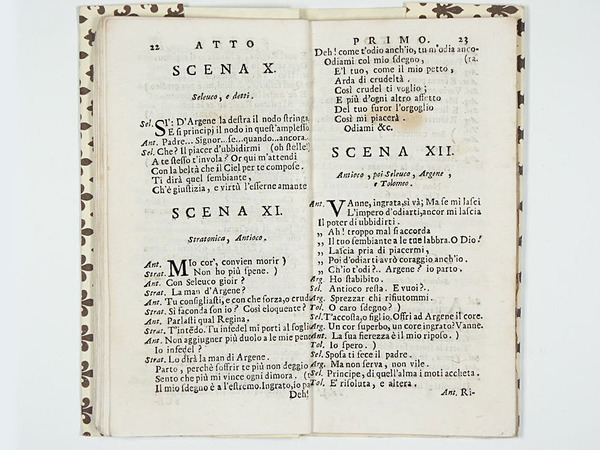 22 ATTO
SCENA X.
Seleuco, e detti.
Sel. SI': D'Argene la destra il nodo stringa,
E si principj il nodo in quest'amplesso
Ant. Padre... Signor...se...quando...ancora.
Sel. Che? Il piacer d'ubbidirmi (oh stelle!
A te stesso t'invola? Or qui m'attendi
Con la beltà che il Ciel per te compose.
Ti dirà quel sembiante,
Ch'è giustizia, e virtù l'esserne amante
SCENA XI.
Stratonica, Antioco.
Ant. MIo cor', convien morir)
Strat. Non ho più spene. )
Ant. Con Seleuco gioir?
Strat. La man d'Argene?
Ant. Tu consigliasti, e con che forza, o cruda
Strat. Sì faconda son io? Così eloquente?
Ant. Parlasti qual Regina.
Strat. T'intēdo. Tu infedel mi porti al sogli
Ant. Non aggiugner più duolo a le mie pene
Io infedel?
Strat. Lo dirà la man di Argene.
Parto, perchè soffrir te più non deggio
Sento che più mi vince ogni dimora.
Il mio sdegno è a l'estremo. Ingrato, io pa
Deh!
PRIMO. 23
Deh! come t'odio anch'io, tu m'odia anco-
Odiami col mio sdegno, (ra.
E'l tuo, come il mio petto,
Arda di crudeltà.
Così crudel ti voglio;
E più d'ogni altro affetto
Del tuo furor l'orgoglio
Così mi piacerà.
Odiami &c.
SCENA XII.
Antioco, poi Seleuco, Argene,
e Tolomeo.
Ant. VAnne, ingrata, sì và; Ma se mi lasci
L'impero d'odiarti, ancor mi lascia
Il poter di ubbidirti.
„ Ah! troppo mal si accorda
„ Il tuo sembiante a le tue labbra. O Dio!
„ Lascia pria di piacermi,
„ Poi d'odiarti avrò coraggio anch'io.
„ Ch'io t'odi?.. Argene? io parto.
Arg. Ho stabilito.
Sel. Antioco resta. E vuoi?..
Arg. Sprezzar chi rifiutommi.
Tol. O caro sdegno?)
Sel. T'accosta, o figlio. Offri ad Argene il core.
Arg. Un cor superbo, un core ingrato? Vanne.
Ant. La sua fierezza è il mio riposo.)
Tol. Io spero. )
Sel. Sposa ti fece il padre.
Arg. Ma non serva, non vile.
Sel. Principe, di quell'alma i moti accheta.
Tol. E' risoluta, e altera.
Ant. Ri-